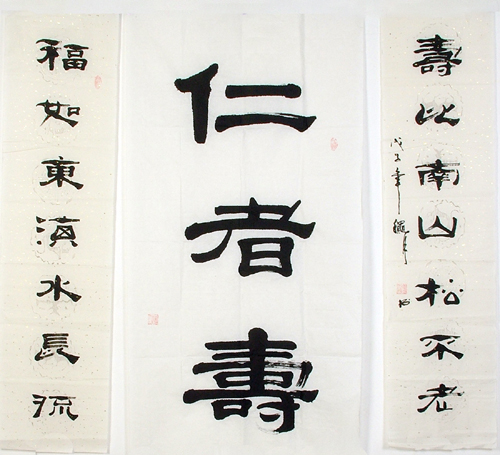 壽比南山松不老
戊子年
仁者壽
福如東海水長流